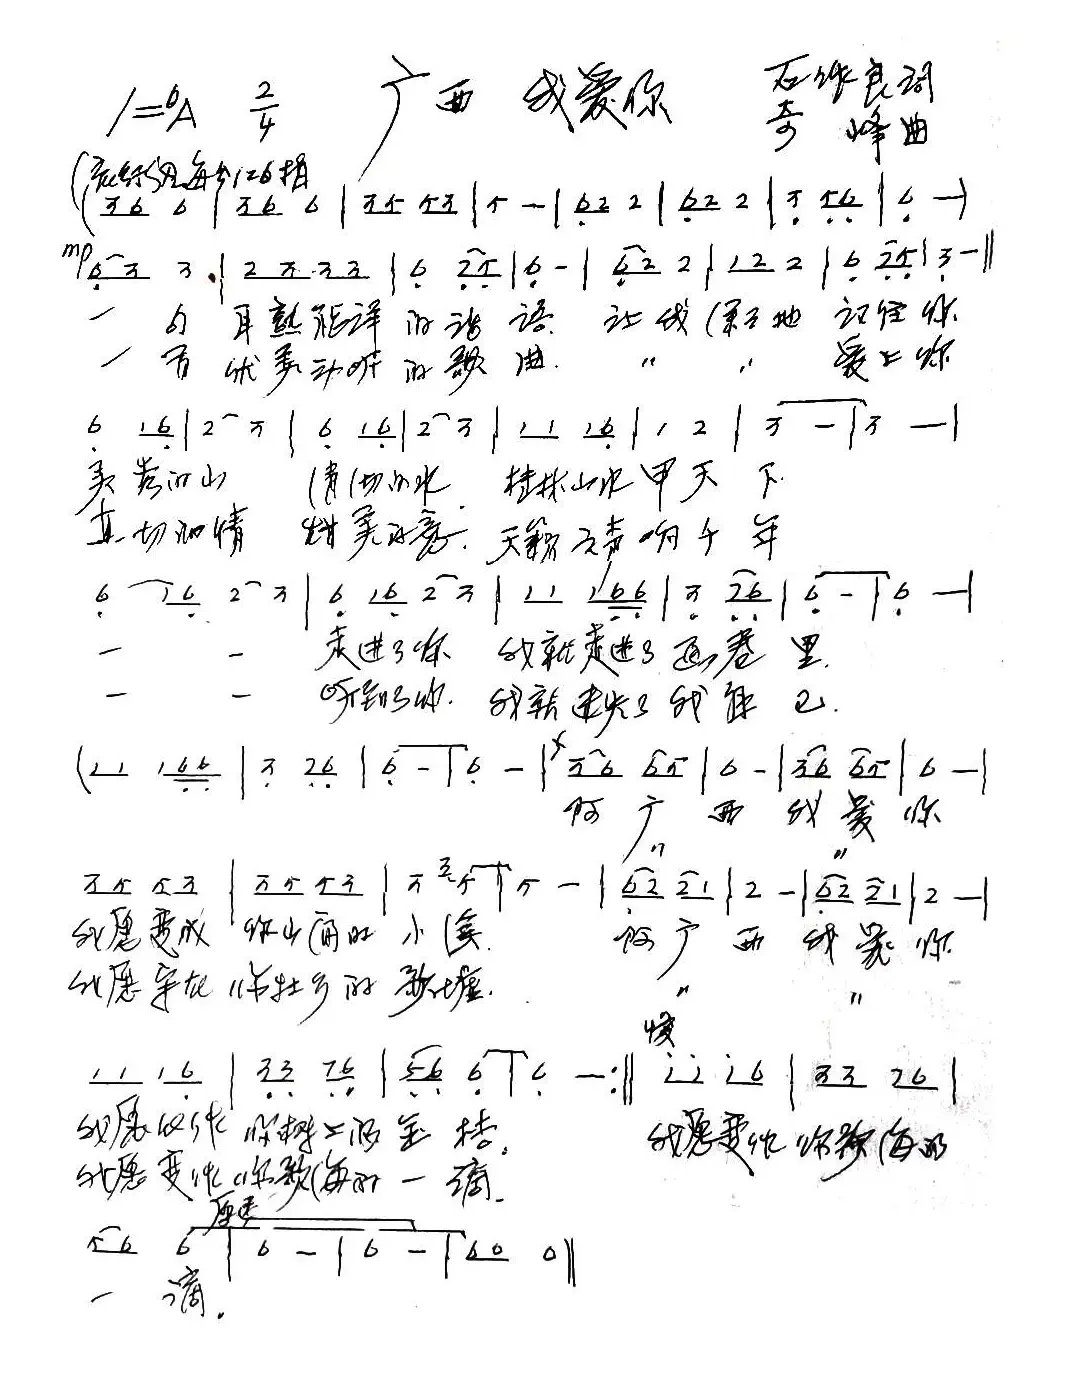 1=bA 2/4 广西 我爱你 石作良词
奇峰曲
每分126拍
(36 6 | 36 6 | 35 53 | 5 - | 62 2 | 62 2 | 3 56 | 6 -)
mp 63 3 · | 23 33 | 6 25 | 6 - | 62 2 | 12 2 | 6 25 | 3 - ‖
一句 耳熟能详的话语. 让我 地 记住你
一首 优美动听的歌曲. " " 爱上你
6 16 | 2 3 | 6 16 | 2 3 | 11 16 | 1 2 | 3 - | 3 - |
美 的山 清切的水 桂林山水甲天下
真切的情 甜美的音. 天籁之声响千年
6 16 2 3 | 6 16 2 3 | 11 166 | 3 26 | 6 - | 6 - |
一 一 走进了你 我就走进了画卷里.
一 一 听到了你. 我就迷失了我自己.
(11 166 | 3 26 | 6 - | 6 - | 36 65 | 6 - | 36 65 | 6 - |
啊广西我爱你
" "
35 53 | 35 53 | 3 35 | 5 - | 62 21 | 2 - | 62 21 | 2 - |
我愿变成 你山 的小溪. 啊广西我爱你
我愿 在你壮乡的歌墟. " "
11 16 | 33 76 | 56 6 | 6 - :‖ 慢 11 16 | 33 76 |
我愿 你树上的金桂. 我愿变作你歌海的
我愿变作你歌海的一滴.
原速
56 6 | 6 - | 6 - | 60 0 ‖
一 滴.